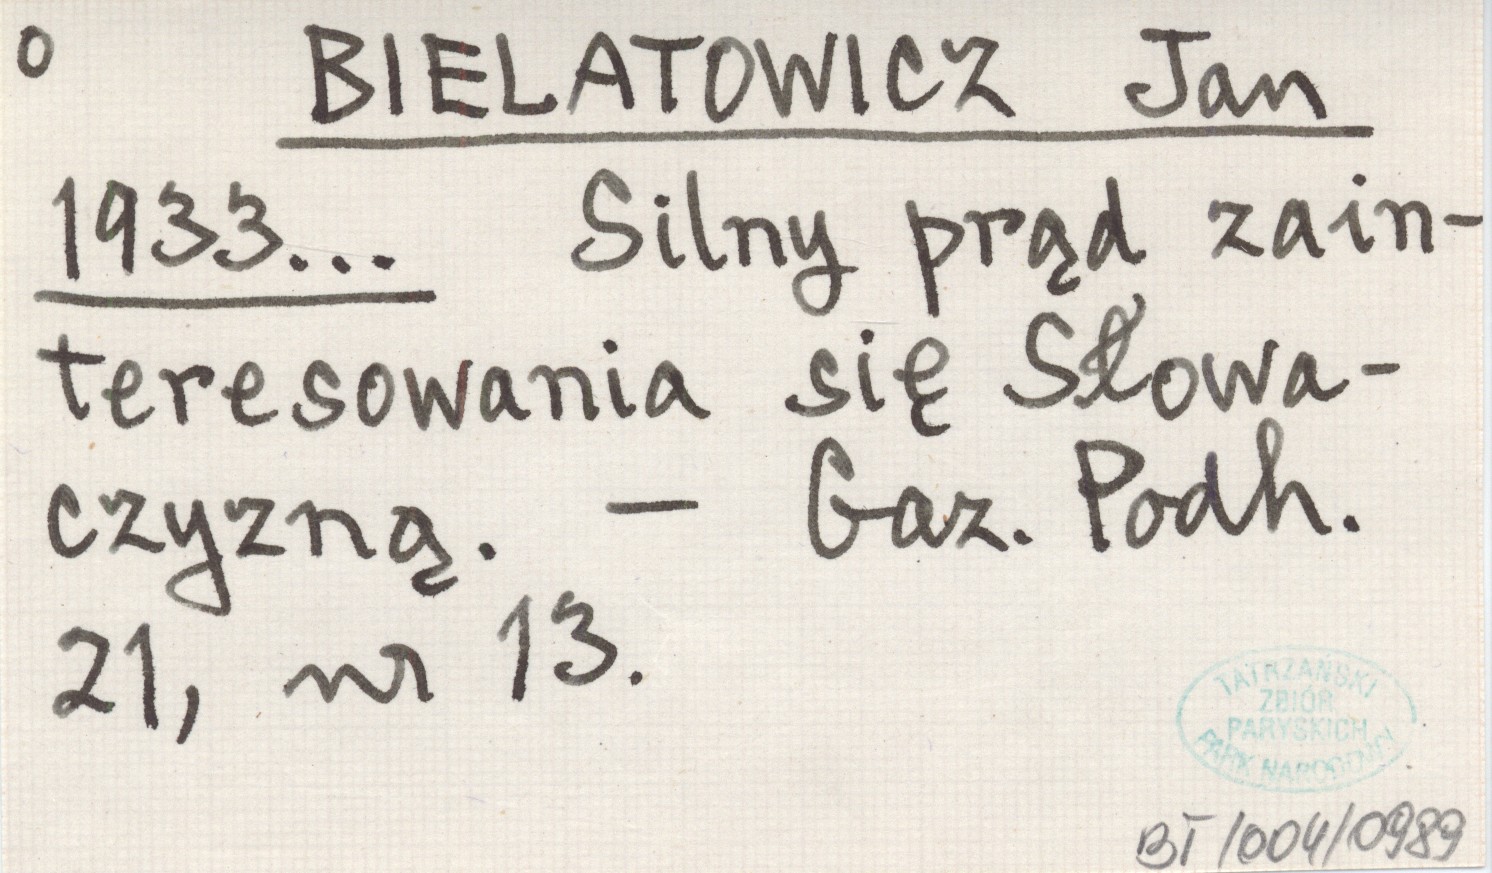 o
BIELATOWICZ Jan
1933... Silny prąd zain-
teresowania się Słowa-
czyzną. — Gaz. Podh.
21, nr 13.
TATRZAŃSKI
ZBIÓR
PARYSKICH
PARK NARODOWY
BT/004/0989